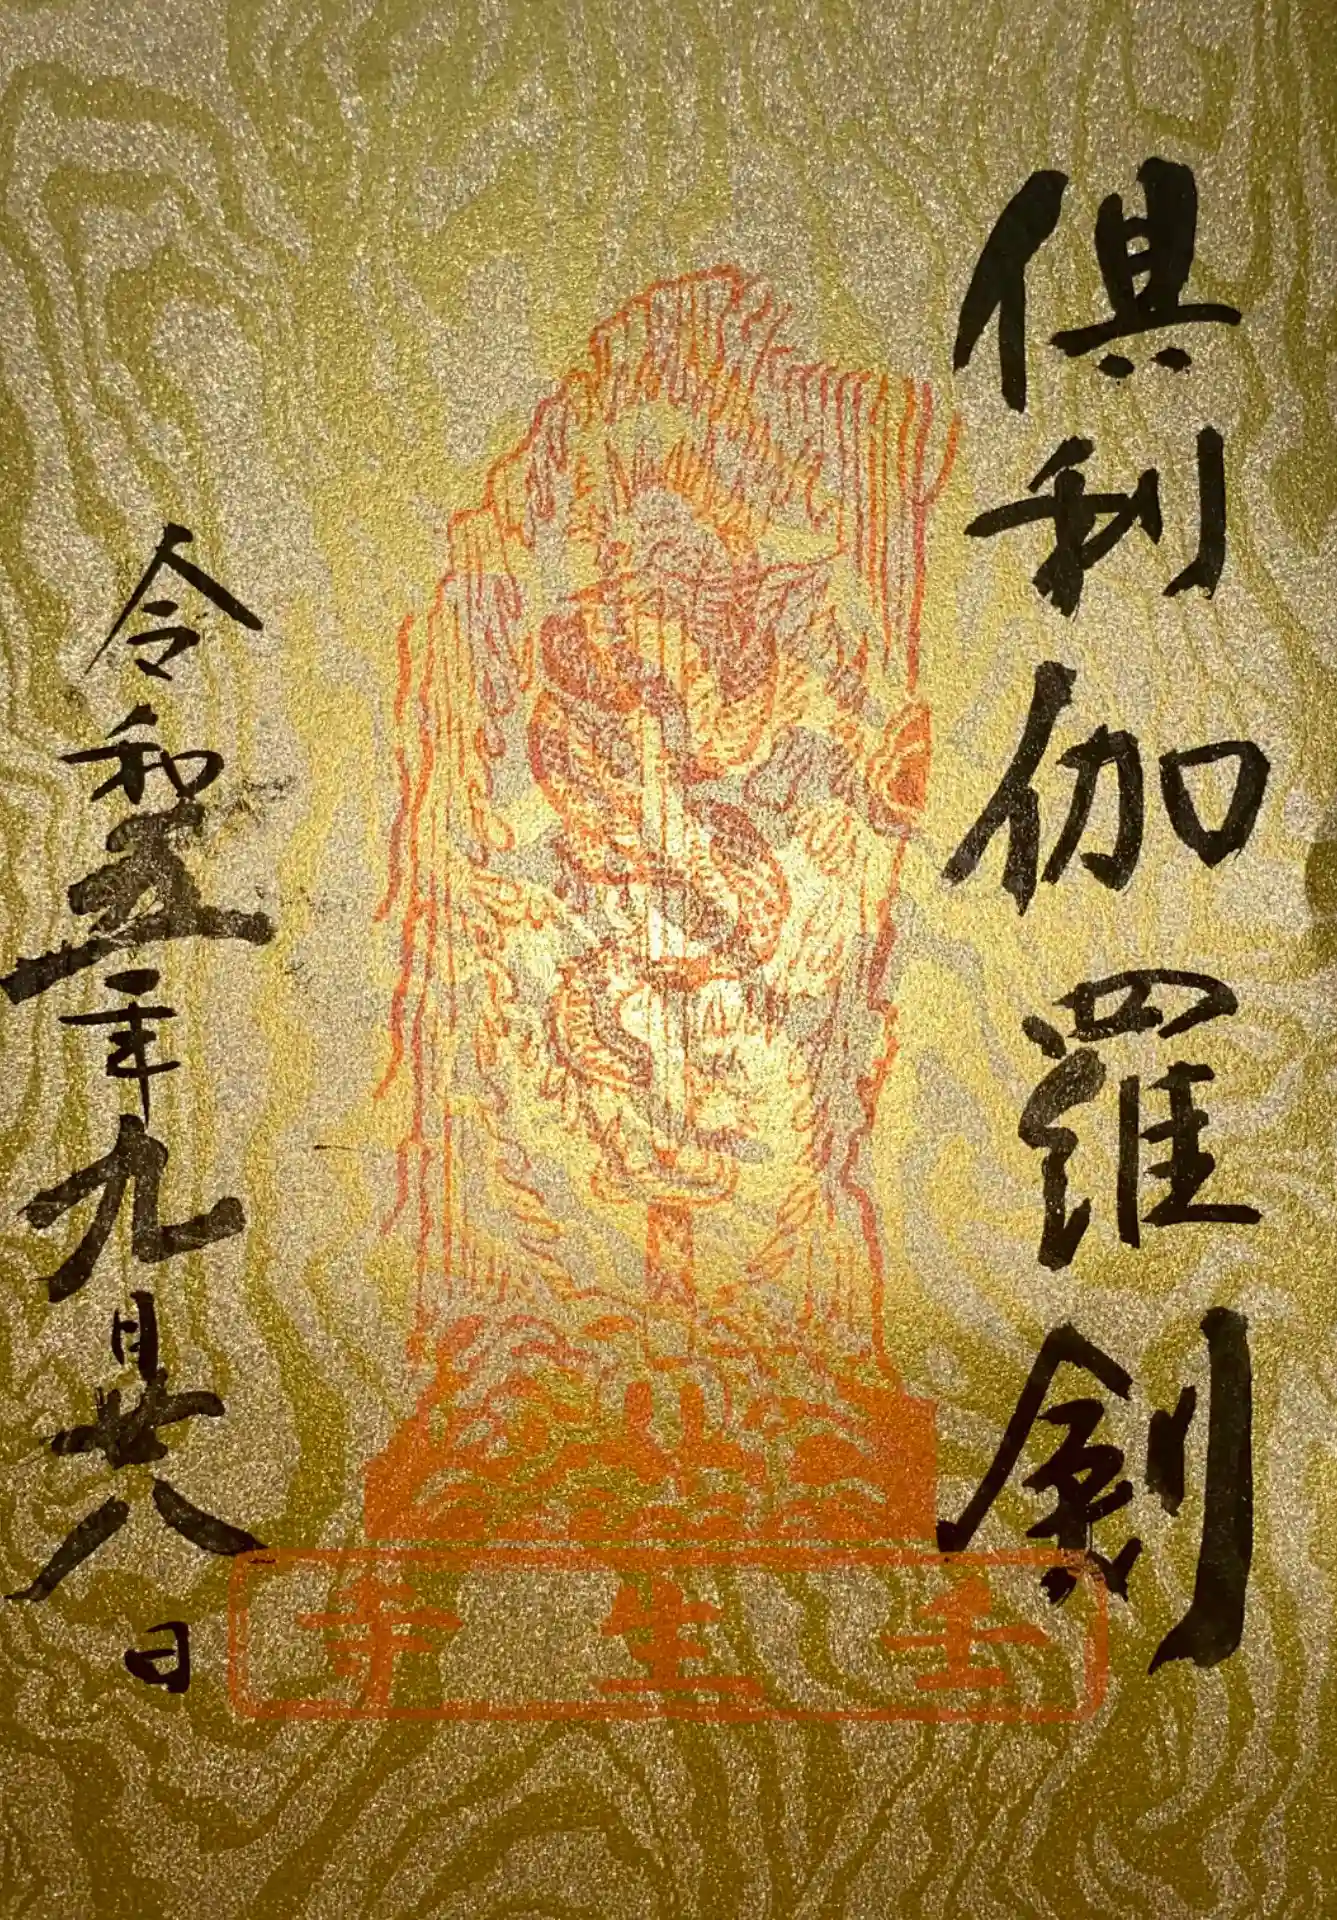 倶利伽羅劍
令和五年九月廿八日
壬生寺